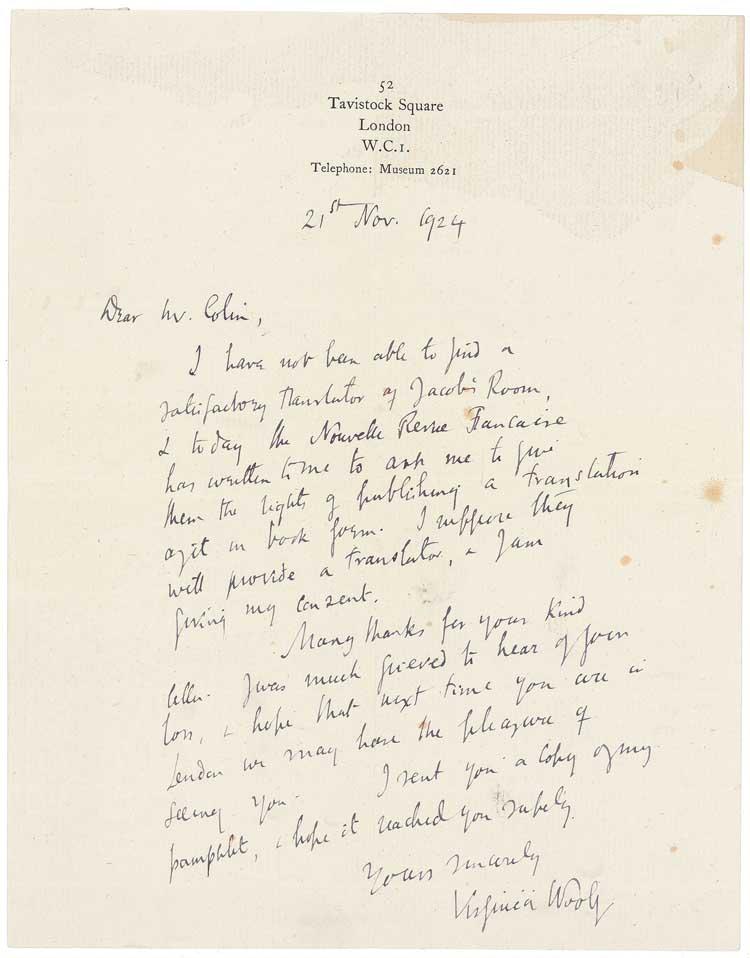 52
Tavistock Square
London
W.C.1.
Telephone: Museum 2621
21st Nov. 1924
Dear Mr. Colin,
I have not been able to find a
satisfactory translator of Jacob's Room,
& today the Nouvelle Revue Francaise
has written to me to ask me to give
them the rights of publishing a translation
of it in book form. I suppose they
will provide a translator, & I am
giving my consent.
Many thanks for your kind
letter. I was much grieved to hear of your
loss, & hope that next time you are in
London we may have the pleasure of
seeing you. I sent you a copy of my
pamphlet, & hope it reached you safely.
Yours sincerely
Virginia Woolf